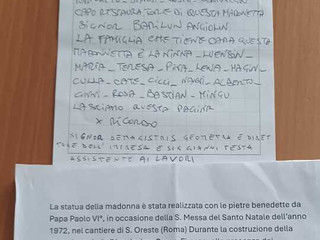 CAPO RESTAURATORE DI QUESTA MADONNETTA
SIGNOR BARILUN ANGIOLIN
LA FAMIGLIA CHE TIENE CARA QUESTA
MADONNETTA È LA NINNA - LUENSON -
MARIA - TERESA - PAPA - LENA -
CULLA - CETE - CICCI - NANNI - ALBERTO -
GIANNI - ROSA - BASTIAN - MINGU
LASCIAMO QUESTA PAGINA
X RICORDO
SIGNOR DEMAGISTRIS GEOMETRA E DIRET
TORE DELL'IMPRESA E SIG GIANNI TESTA
ASSISTENTE AI LAVORI
La statua della madonna è stata realizzata con le pietre benedette da
Papa Paolo VI°, in occasione della S. Messa del Santo Natale dell'anno
1972, nei cantiere di S. Oreste (Roma) Durante la costruzione della